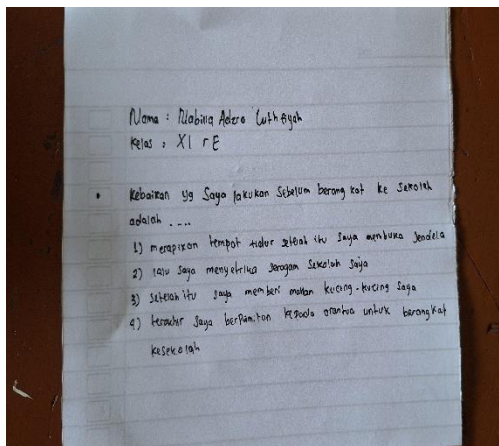 Nama : Nabila Adzra Luthfiyah
Kelas : XI rE
• Kebaikan yg Saya lakukan Sebelum berangkat ke Sekolah
adalah ....
1) merapikan tempat tidur setelah itu Saya membuka Jendela
2) lalu Saya menyetrika seragam Sekolah Saya
3) setelah itu saya memberi makan kucing-kucing Saya
4) terakhir Saya berpamitan kepada orantua untuk berangkat
kesekolah